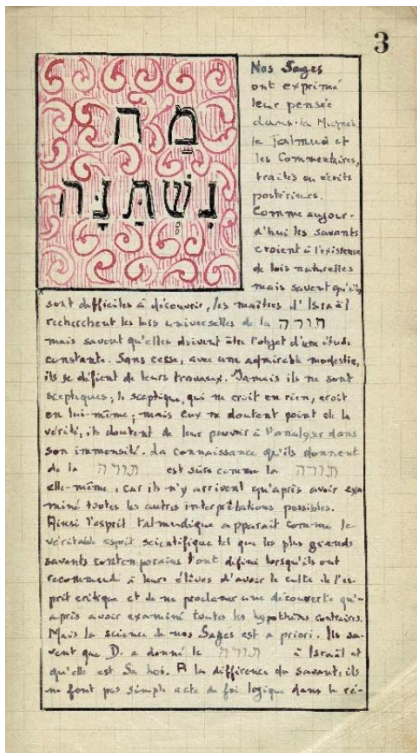 3
מַה
נִּשְׁתַּנָּה
Nos Sages
ont exprimé
leur pensée
dans la Michnah
le Talmud et
les Commentaires,
traités ou écrits
postérieurs.
Comme aujour-
d'hui les savants
croient à l'existence
de lois naturelles
mais savent qu'elles
sont difficiles à découvrir, les maîtres d'Israël
recherchent les lois universelles de la תורה
mais savent qu'elles doivent être l'objet d'une étude
constante. Sans cesse, avec une admirable modestie,
ils se défient de leurs travaux. Jamais ils ne sont
sceptiques; le sceptique, qui ne croit en rien, croit
en lui-même; mais eux ne doutent point de la
vérité, ils doutent de leur pouvoir à l'analyser dans
son immensité. La connaissance qu'ils donnent
de la תורה est sûre comme la תורה
elle-même, car ils n'y arrivent qu'après avoir exa
miné toutes les autres interprétations possibles.
Ainsi l'esprit talmudique apparaît comme le
véritable esprit scientifique tel que les plus grands
savants contemporains l'ont défini lorsqu'ils ont
recommandé à leurs élèves d'avoir le culte de l'es-
prit critique et de ne proclamer une découverte qu'-
après avoir examiné toutes les hypothèses contraires.
Mais la science de nos Sages est a priori. Ils sa-
vent que D. a donné la תורה à Israël et
qu'elle est Sa loi. A la différence du savant, ils
ne font pas simple acte de foi logique dans la ré-